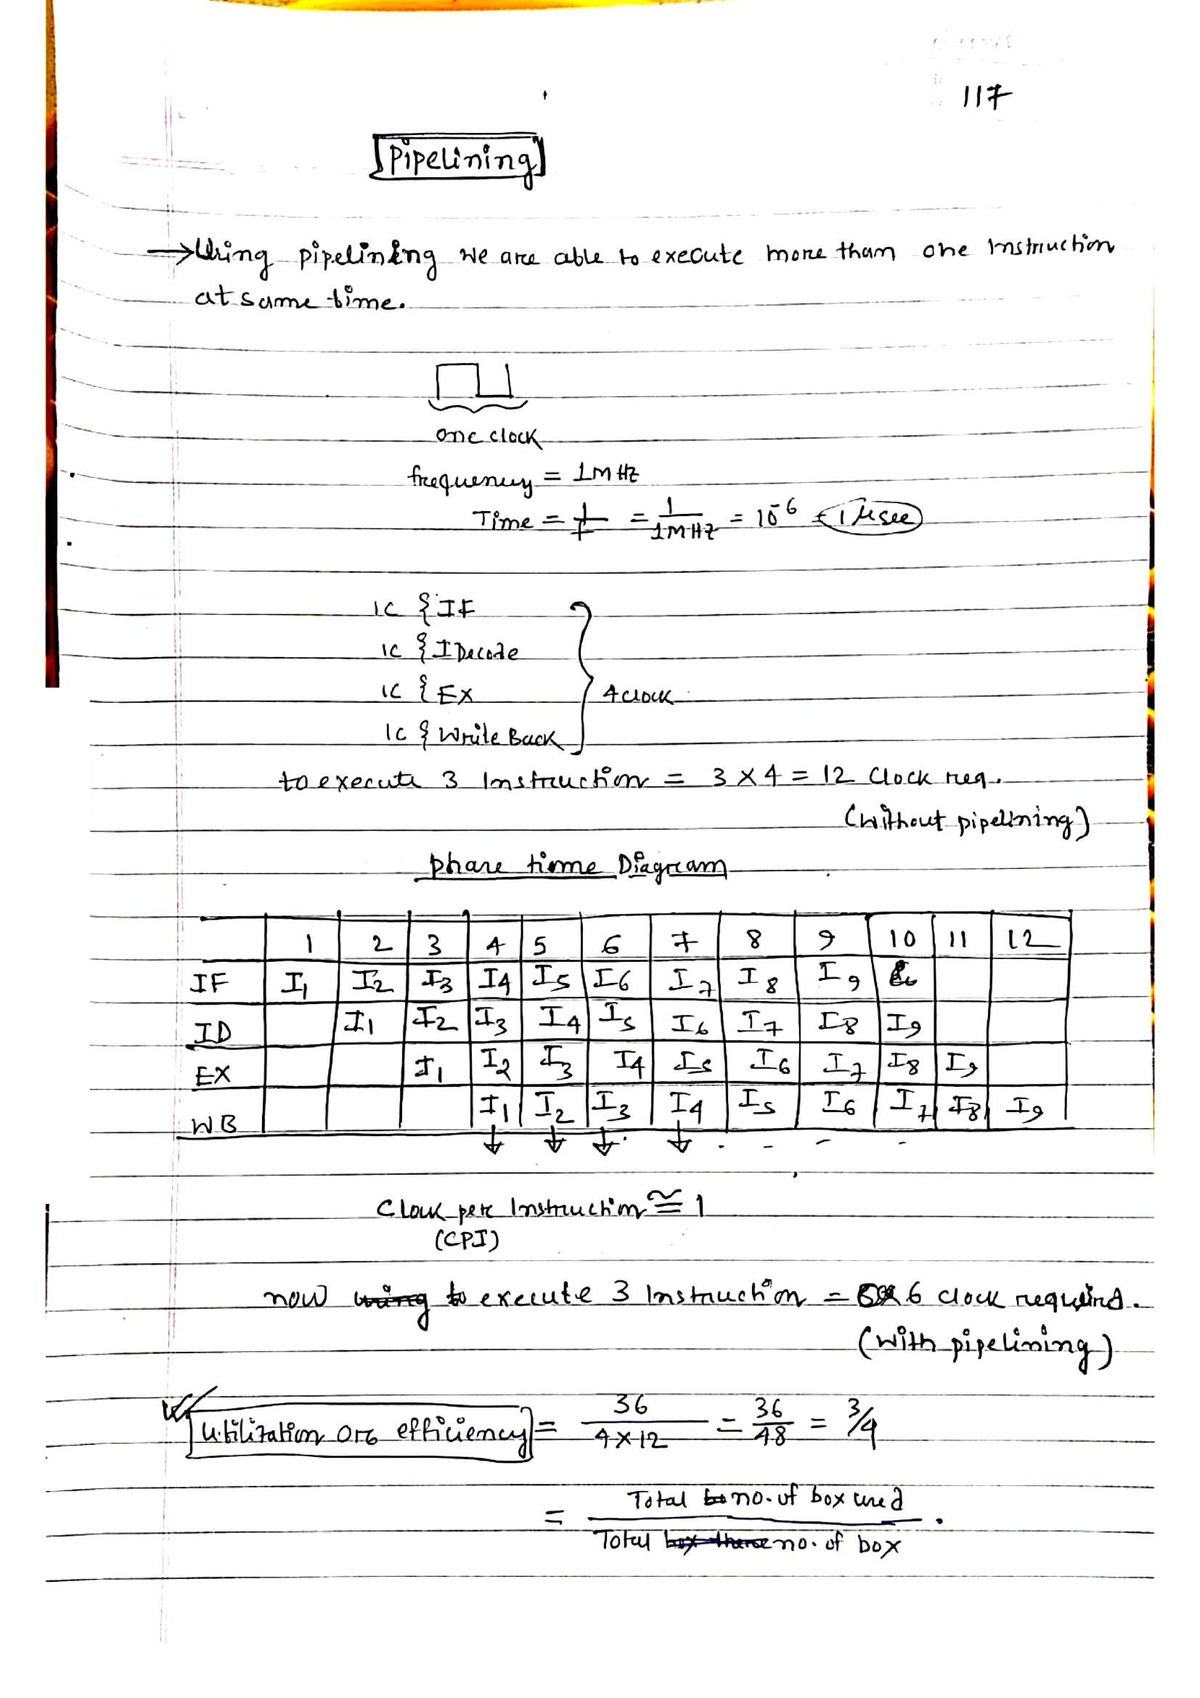 117
Pipelining
→ Using pipelining we are able to execute more than one Instruction
at same time.
one clock
frequency = 1MHz
Time = 1/f = 1/1MHz = 10^-6 = 1 μsec
1C { IF
1C { I Decode
1C { EX
1C { Write Back
4 clock
to execute 3 Instruction = 3 × 4 = 12 Clock req.
(Without pipelining)
phase time Diagram
1 2 3 4 5 6 7 8 9 10 11 12
IF I1 I2 I3 I4 I5 I6 I7 I8 I9
ID I1 I2 I3 I4 I5 I6 I7 I8 I9
EX I1 I2 I3 I4 I5 I6 I7 I8 I9
WB I1 I2 I3 I4 I5 I6 I7 I8 I9
Clock per Instruction ≅ 1
(CPI)
now to execute 3 Instruction = 6 clock required.
(with pipelining)
Utilization or efficiency = 36/4×12 = 36/48 = 3/4
= Total no. of box used / Total no. of box